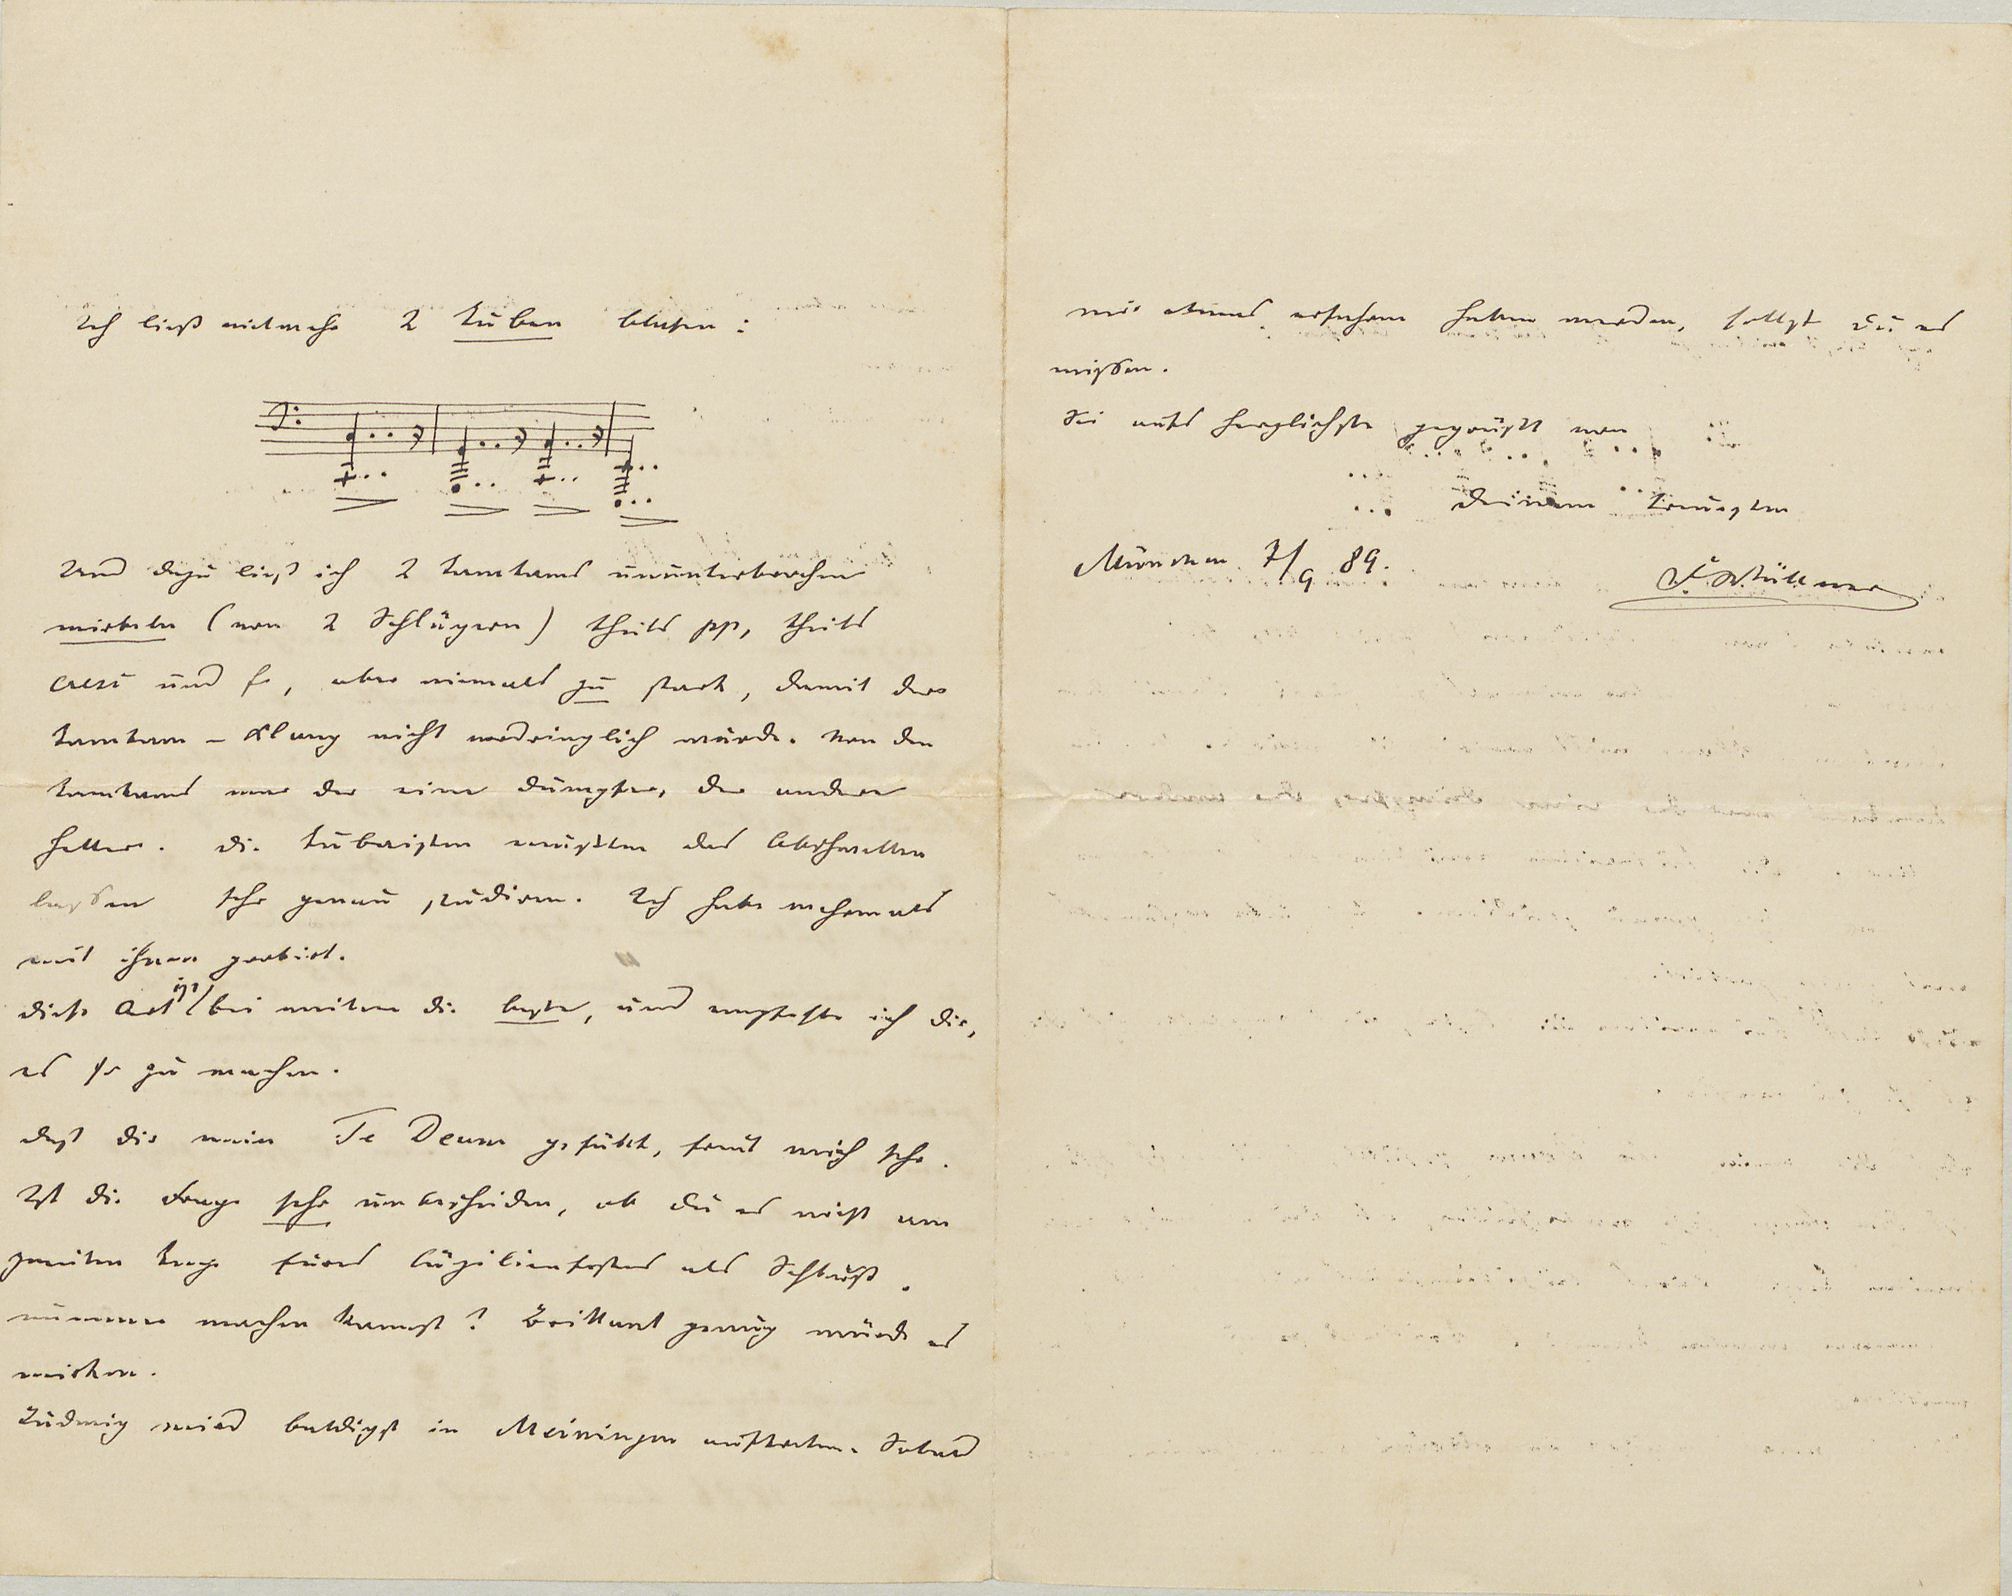 Ich ließ vielmehr 2 Tuben blasen:
Und dazu ließ ich 2 Tamtams ununterbrochen
wirbeln (von 2 Schlägern) theils pp, theils
cresc und fo, aber niemals zu stark, damit der
Tamtam-Klang nicht vordringlich würde. Von den
Tamtams war der eine dumpfer, der andere
heller. Die Tubaisten mußten das Abschwellen
lassen sehr genau studiren. Ich habe mehrmals
mit ihnen probirt.
Diese Art ist bei weitem die beste, und empfehle ich dir,
es so zu machen.
Daß dir mein Te Deum gefällt, freut mich sehr.
Ist die Frage sehr unbescheiden, ob du es nicht am
zweiten Tage eures Cäzilienfestes als Schluß-
nummer machen kannst? Brillant genug würde es
wirken.
Ludwig wird baldigst in Meiningen auftreten. Sobald
wir etwas erfahren haben werden, sollst du es
wissen.
Sei aufs herzlichste gegrüßt von
deinem treuesten
München 7/9 89.
F. Wüllner